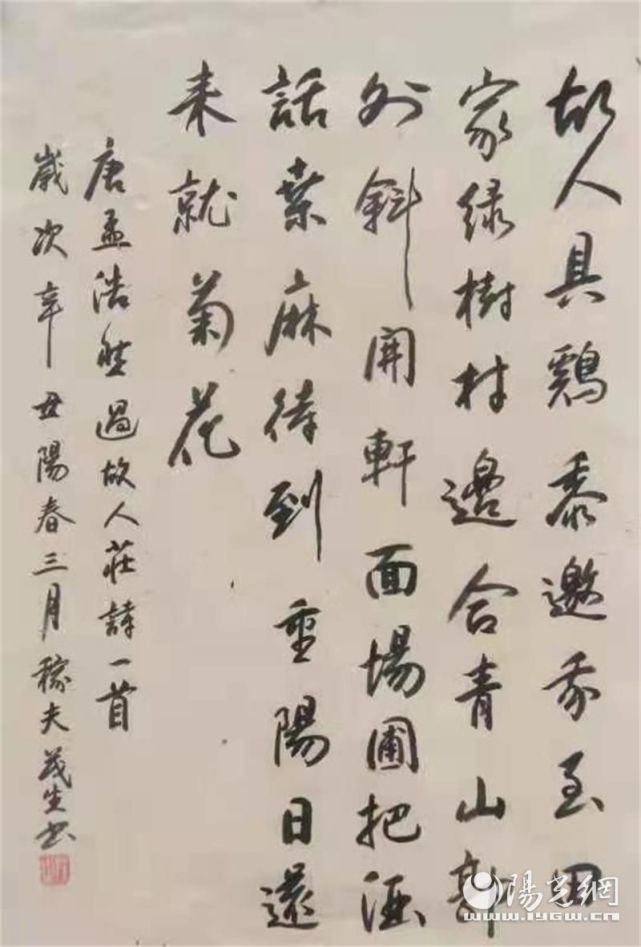 故人具鷄黍邀我至田
家绿樹村邊合青山郭
外斜開軒面場圃把酒
話桑麻待到重陽日還
来就菊花
唐孟浩然過故人莊詩一首
歲次辛丑陽春三月稼夫茂生书
陽光網
www.iygw.cn